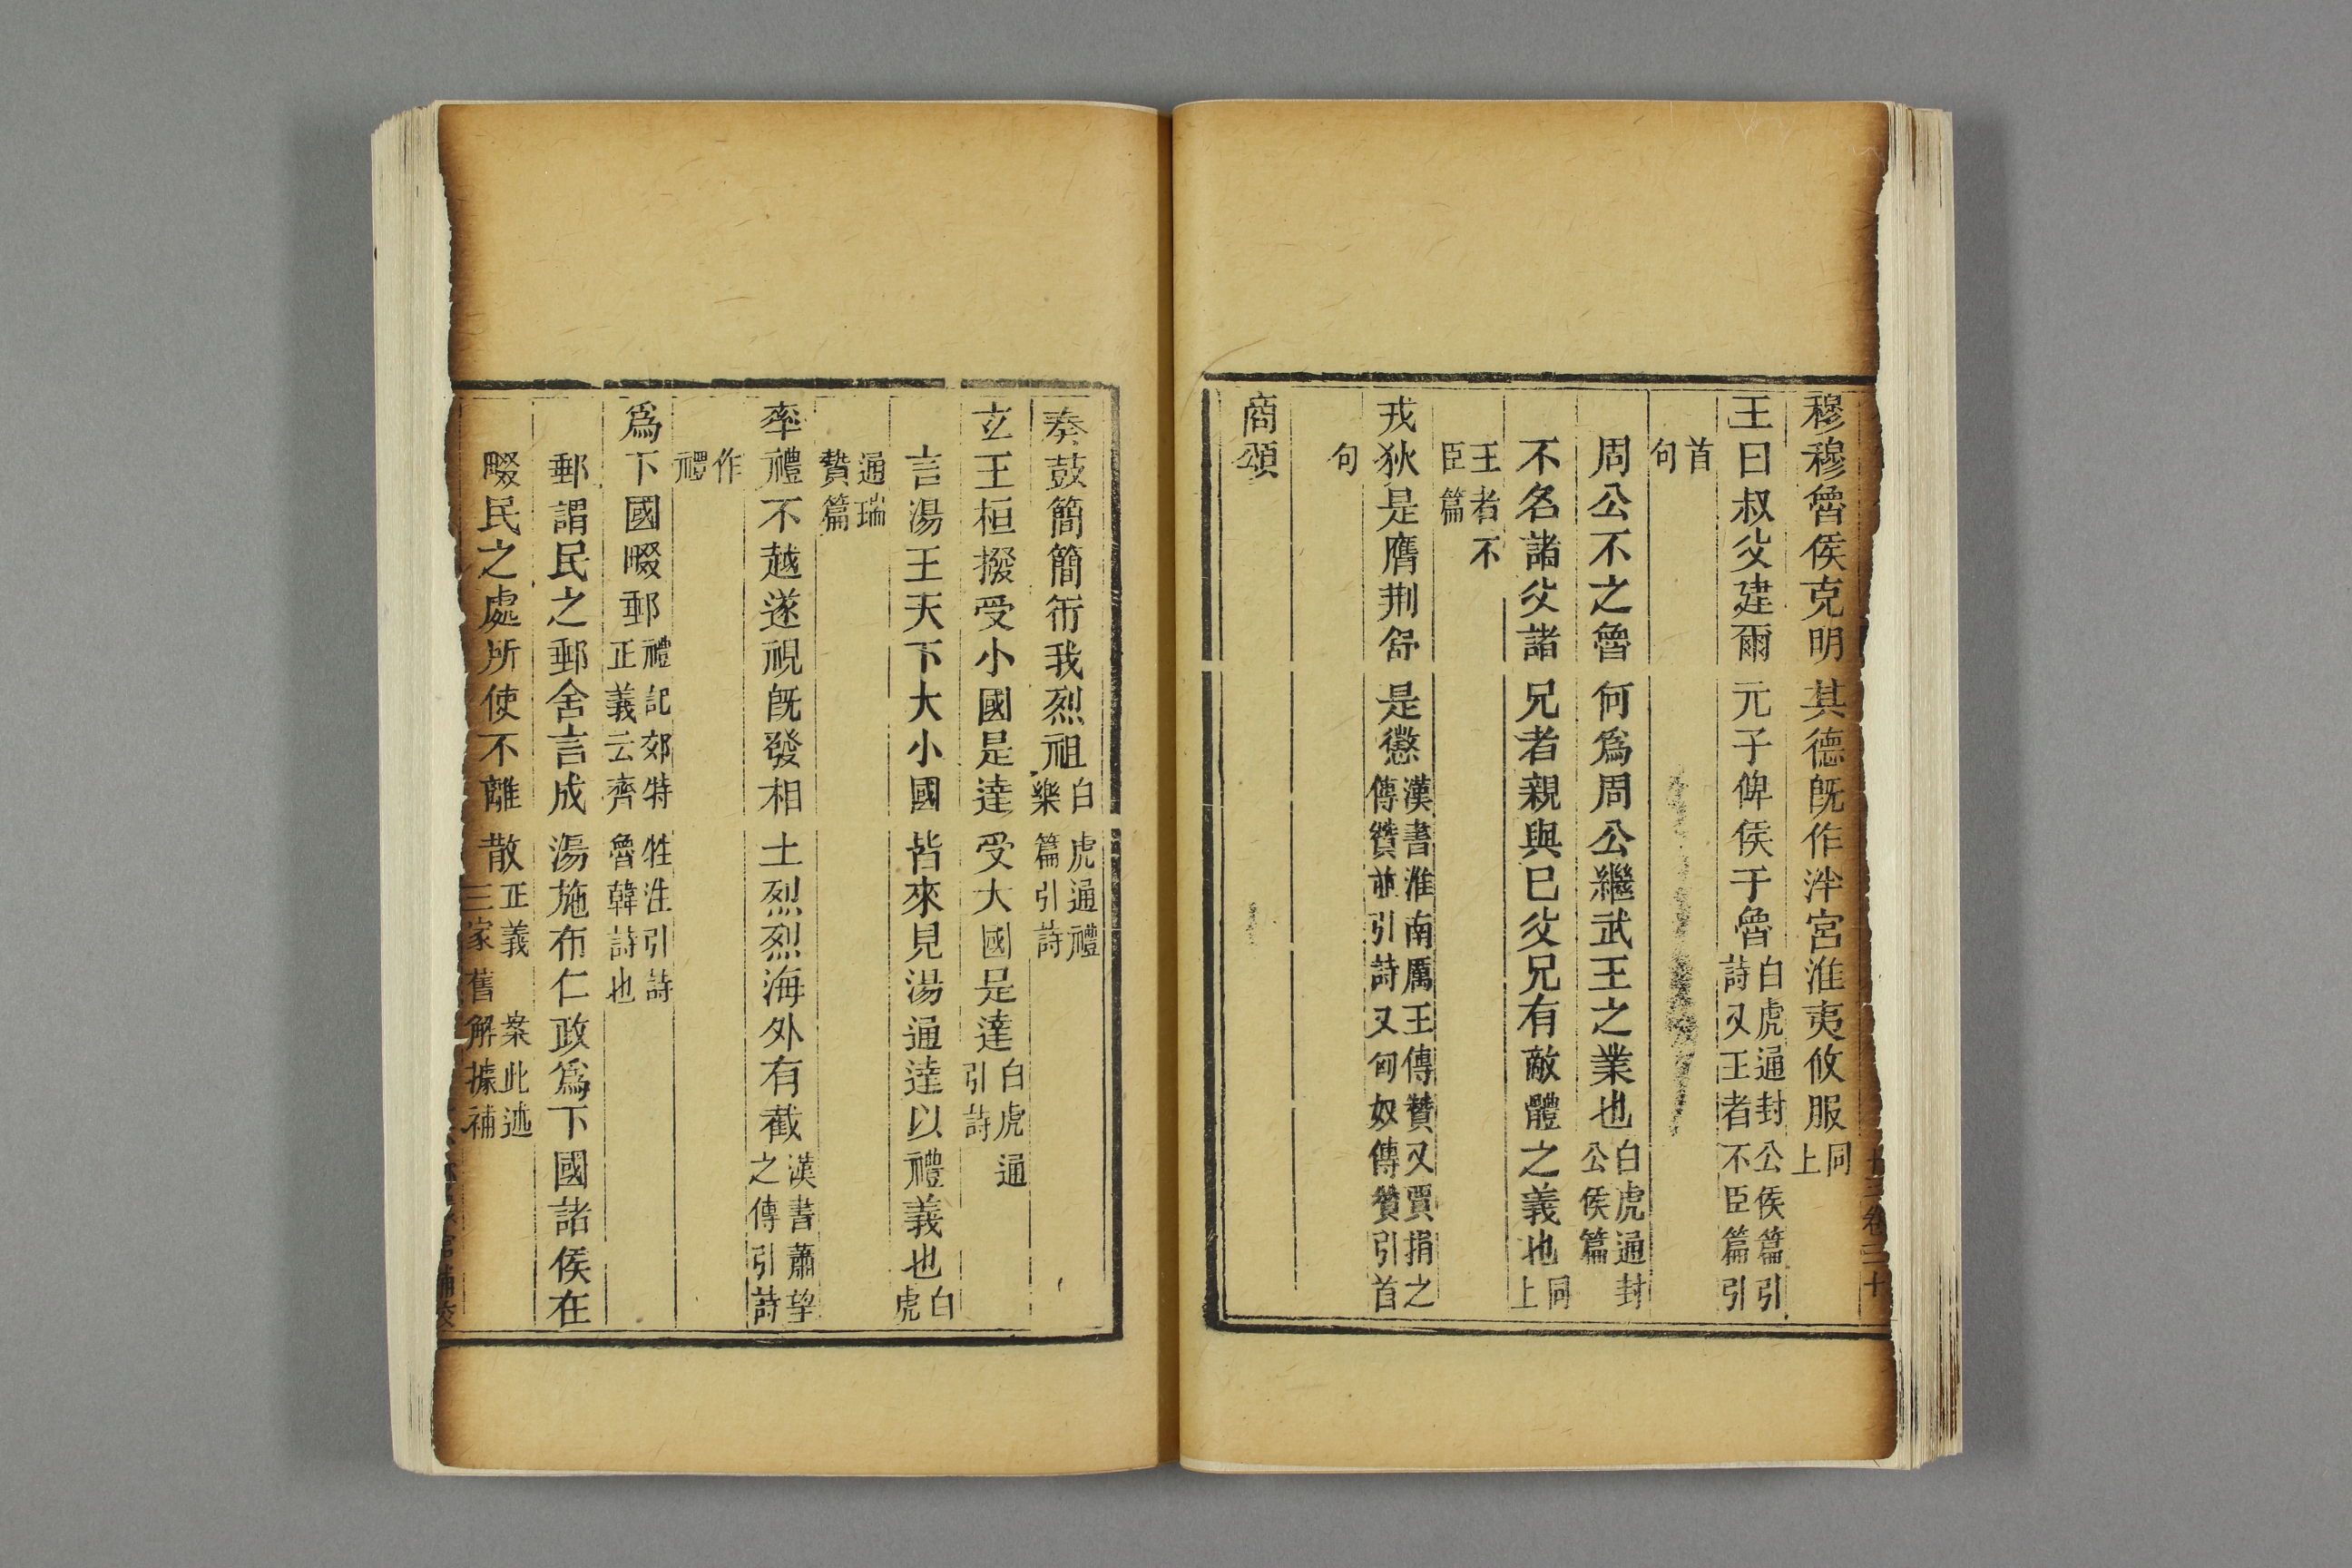 穆穆魯侯克明其德旣作泮宮淮夷攸服同上
王曰叔父建爾元子俾侯于魯白虎通封公侯篇引詩又王者不臣篇引
首句
周公不之魯何爲周公繼武王之業也白虎通封公侯篇
不名諸父諸兄者親與己父兄有敵體之義也同上
王者不臣篇
戎狄是膺荆舒是懲漢書淮南厲王傳贊又賈捐之傳贊並引詩又匈奴傳贊引首
句
商頌
奏鼓簡簡衎我烈祖白虎通禮樂篇引詩
玄王桓撥受小國是達受大國是達白虎通引詩
言湯王天下大小國皆來見湯通達以禮義也白虎
通瑞贄篇
率禮不越遂視旣發相土烈烈海外有截漢書蕭望之傳引詩
作禮
爲下國畷郵禮記郊特牲注引詩正義云齊魯韓詩也
郵謂民之郵舍言成湯施布仁政爲下國諸侯在
畷民之處所使不離散正義案此述三家舊解據補